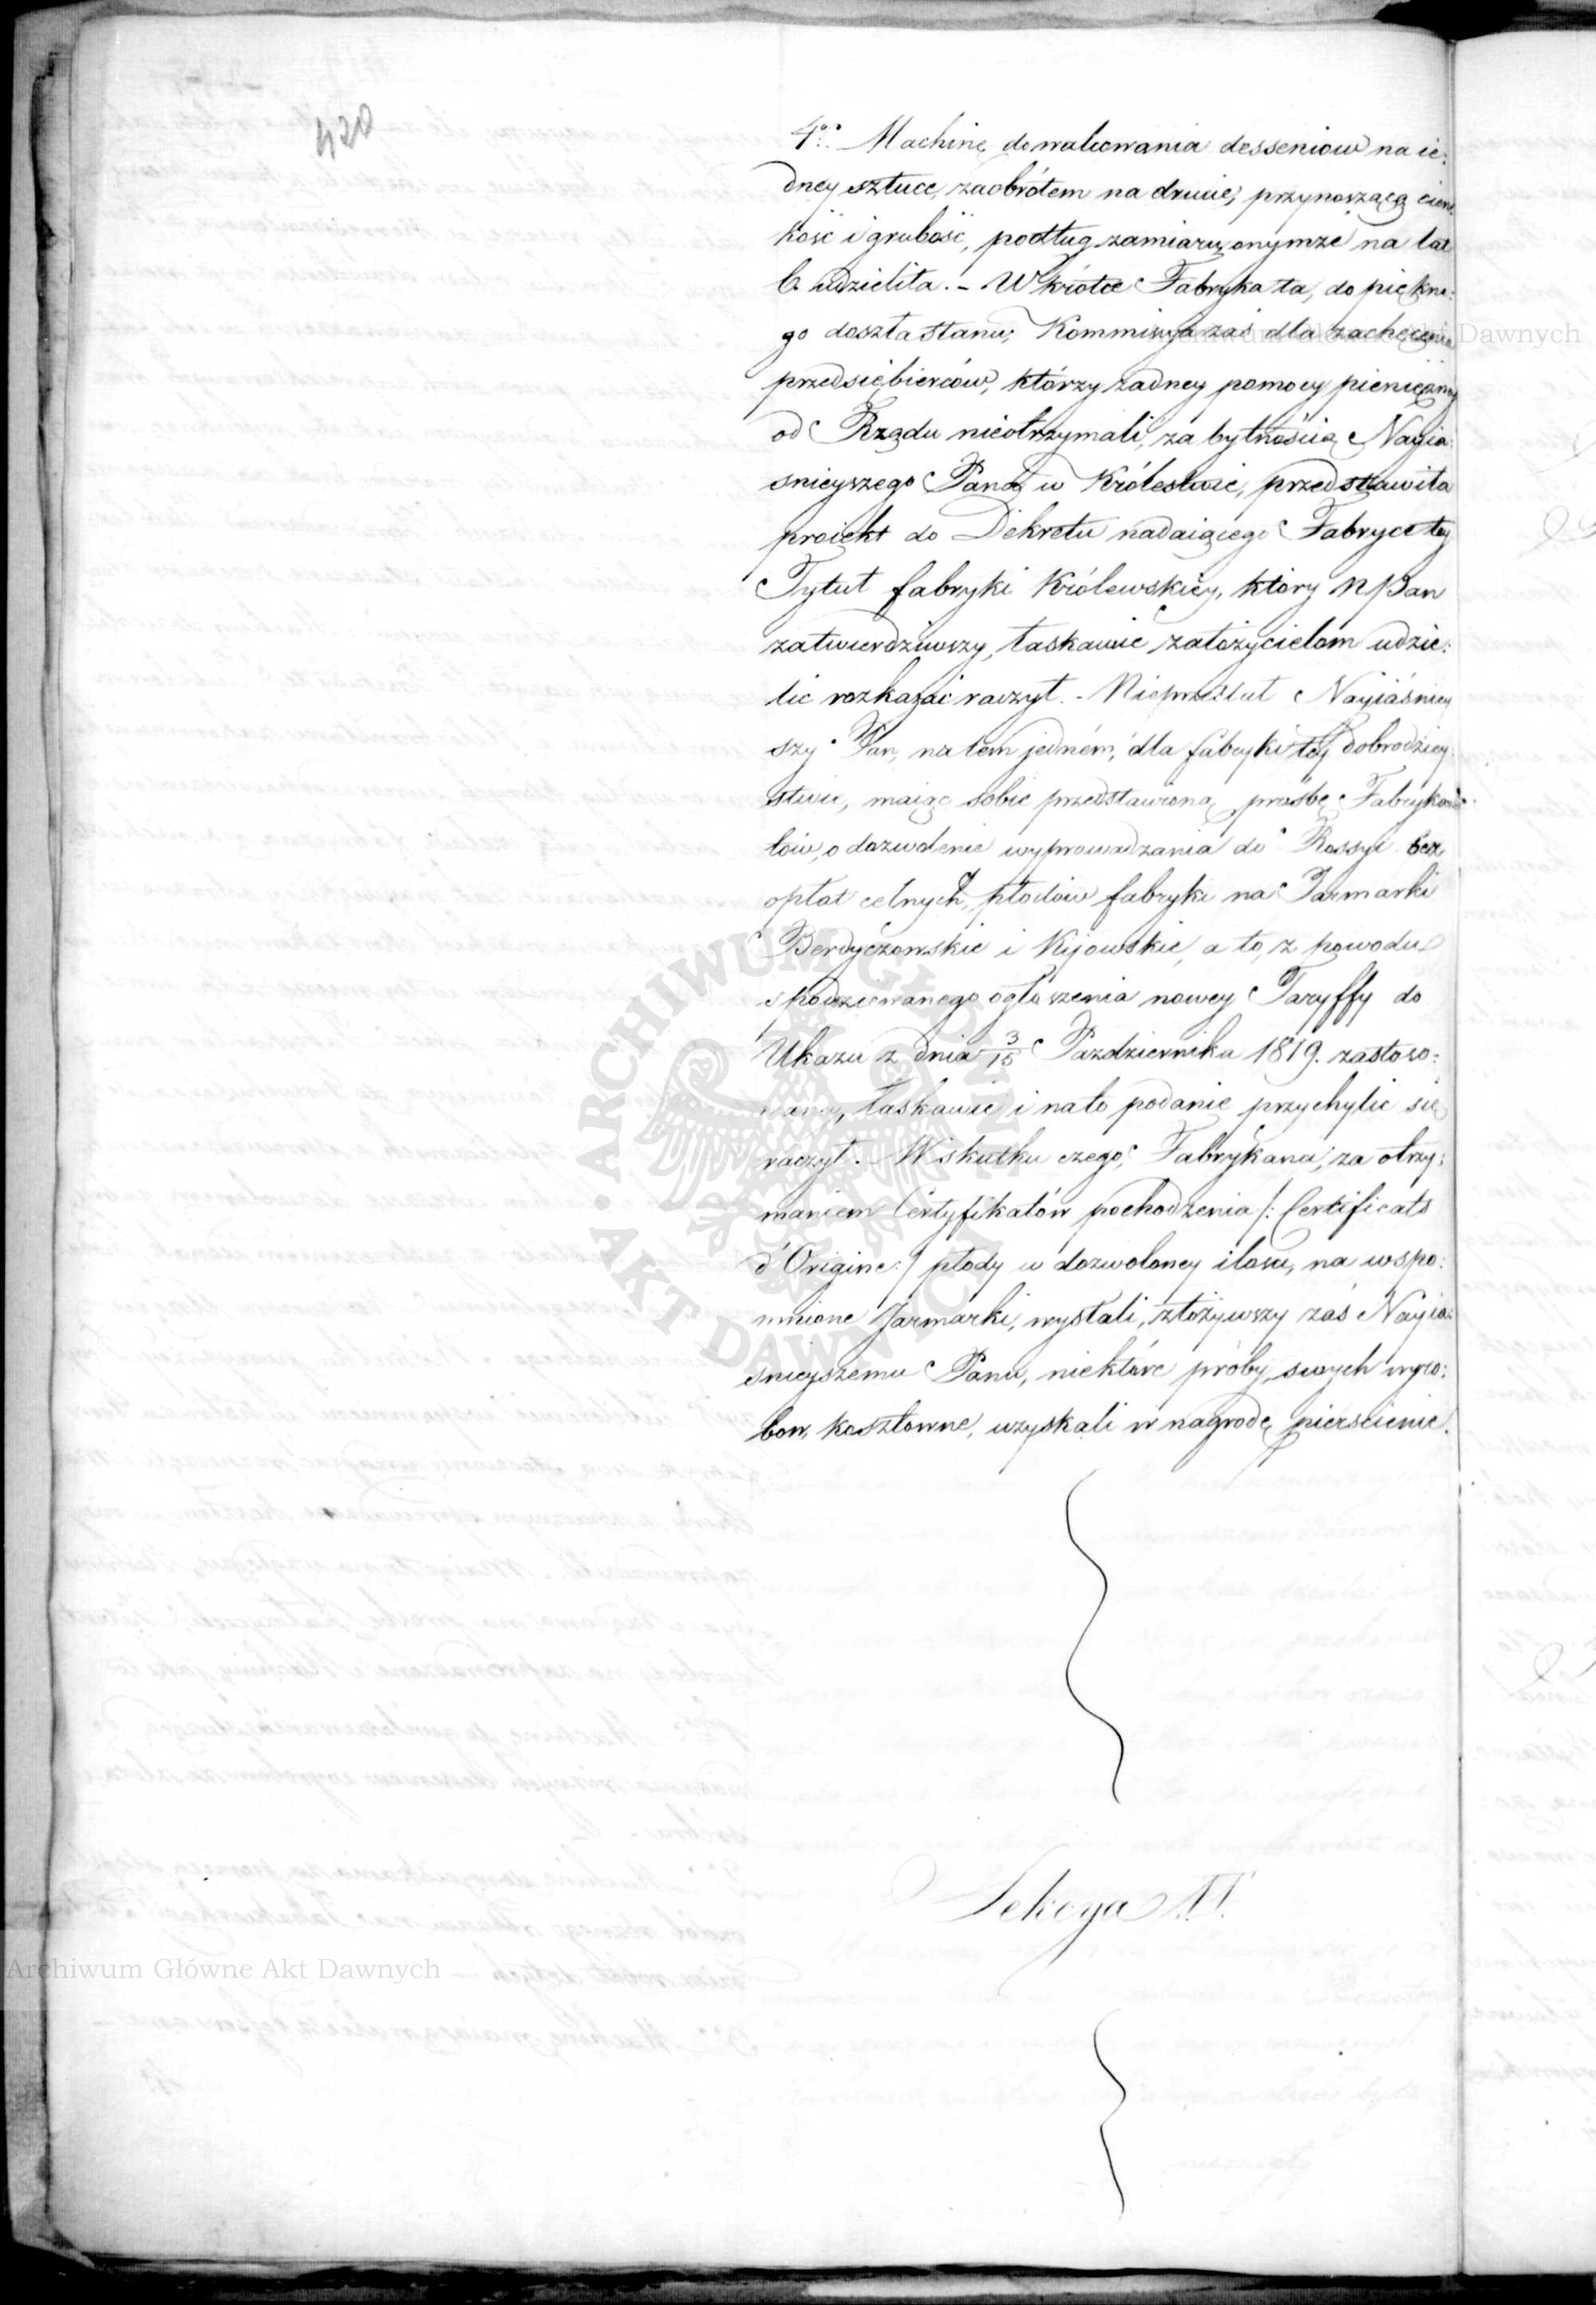 420
4to Machinę do walcowania desseniow na ie:
dney sztuce, zaobrótem na drucie, przynoszącą cien:
kość i grubość, podług zamiaru, onymże na lat
6 udzieliła. – Wkrótce Fabryka ta, do piękne:
go doszła stanu; Kommissya zaś dla zachęcenia
przedsiębierców, którzy żadney pomocy pieniężney
od Rządu nieotrzymali, za bytnością Nayia:
śnieyszego Pana w Królestwie, przedstawiła
proiekt do Dekretu nadaiącego Fabryce tey
Tytuł fabryki Królewskiey, który NPan
zatwierdziwszy, łaskawie założycielom udzie:
lić rozkazać raczył. – Nieprzestał Nayiaśniey
szy Pan, na tem jedném, dla fabryki tey dobrodziey:
stwie, maiąc sobie przedstawioną prośbę Fabrykan:
tów, o dozwolenie wyprowadzania do Rossyi bez
opłat celnych, płodów fabryki na Jarmarki
Berdyczowskie i Kijowskie, a to, z powodu
spodziewanego ogłoszenia nowey Taryffy do
Ukazu z dnia 3/15 Pazdziernika 1819. zastoso:
waney, łaskawie i na to podanie przychylić się
raczył. – W skutku czego, Fabrykanci, za otrzy:
maniem Certyfikatów pochodzenia /: Certificats
d'Origine :/ płody w dozwoloney ilości, na wspo:
mnione Jarmarki, wysłali, złożywszy zaś Nayia:
śnieyszemu Panu, niektóre próby, swych wyro:
bow, kosztowne, uzyskali w nagrodę pierscienie.
Sekcya II.
Archiwum Główne Akt Dawnych
Akt Dawnych
ARCHIWUM GŁÓWNE AKT DAWNYCH